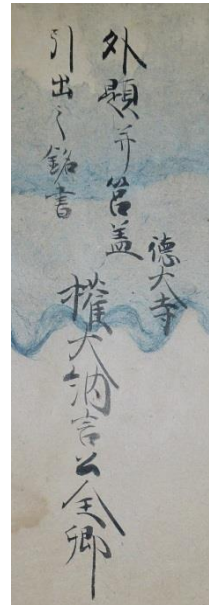 外題并筥盖
引出之銘書
徳大寺
権大納言公全卿